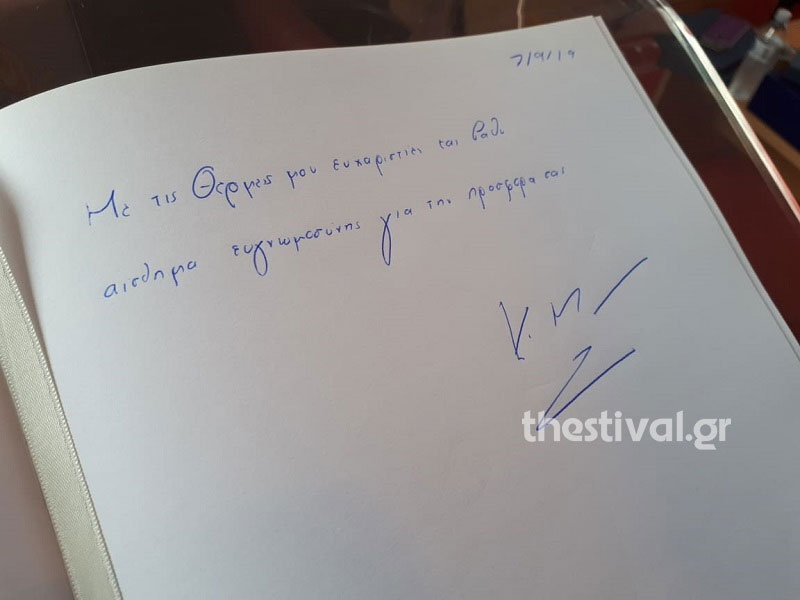 7/9/19
Με τις θερμες μου ευχαριστιες και βαθυ
αισθημα ευγνωμοσυνης για την προσφορα σας
Κ. Μ
thestival.gr